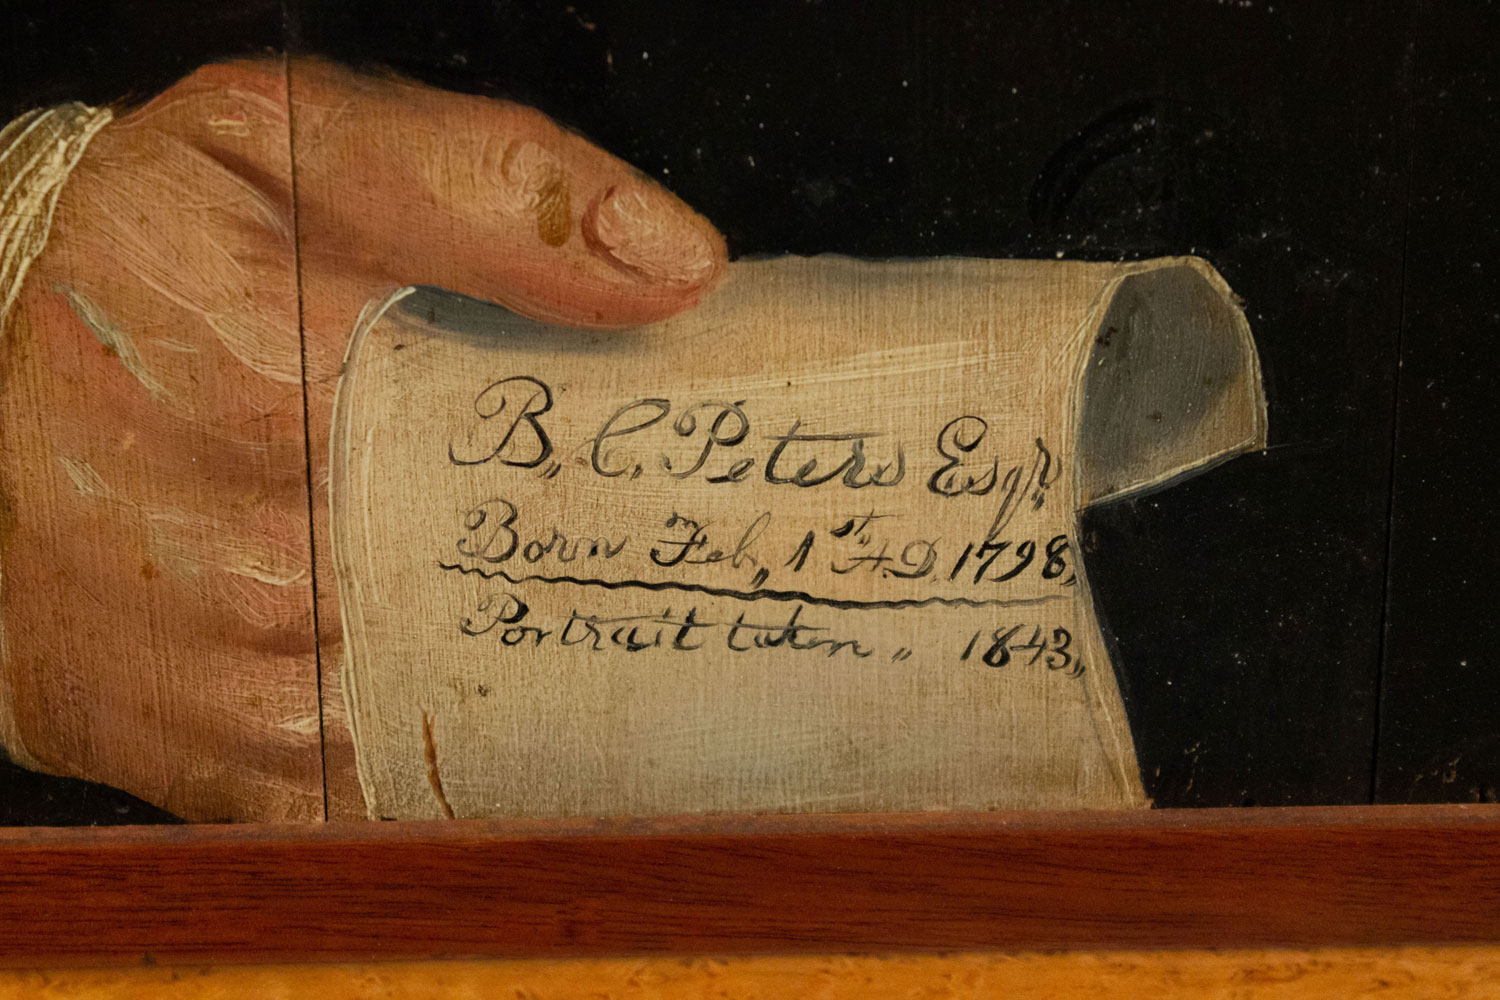 B,, C. Peters Esqr,,
Born Feb,, 1st,, A.D. 1798,,
Portrait taken ,, 1843,,